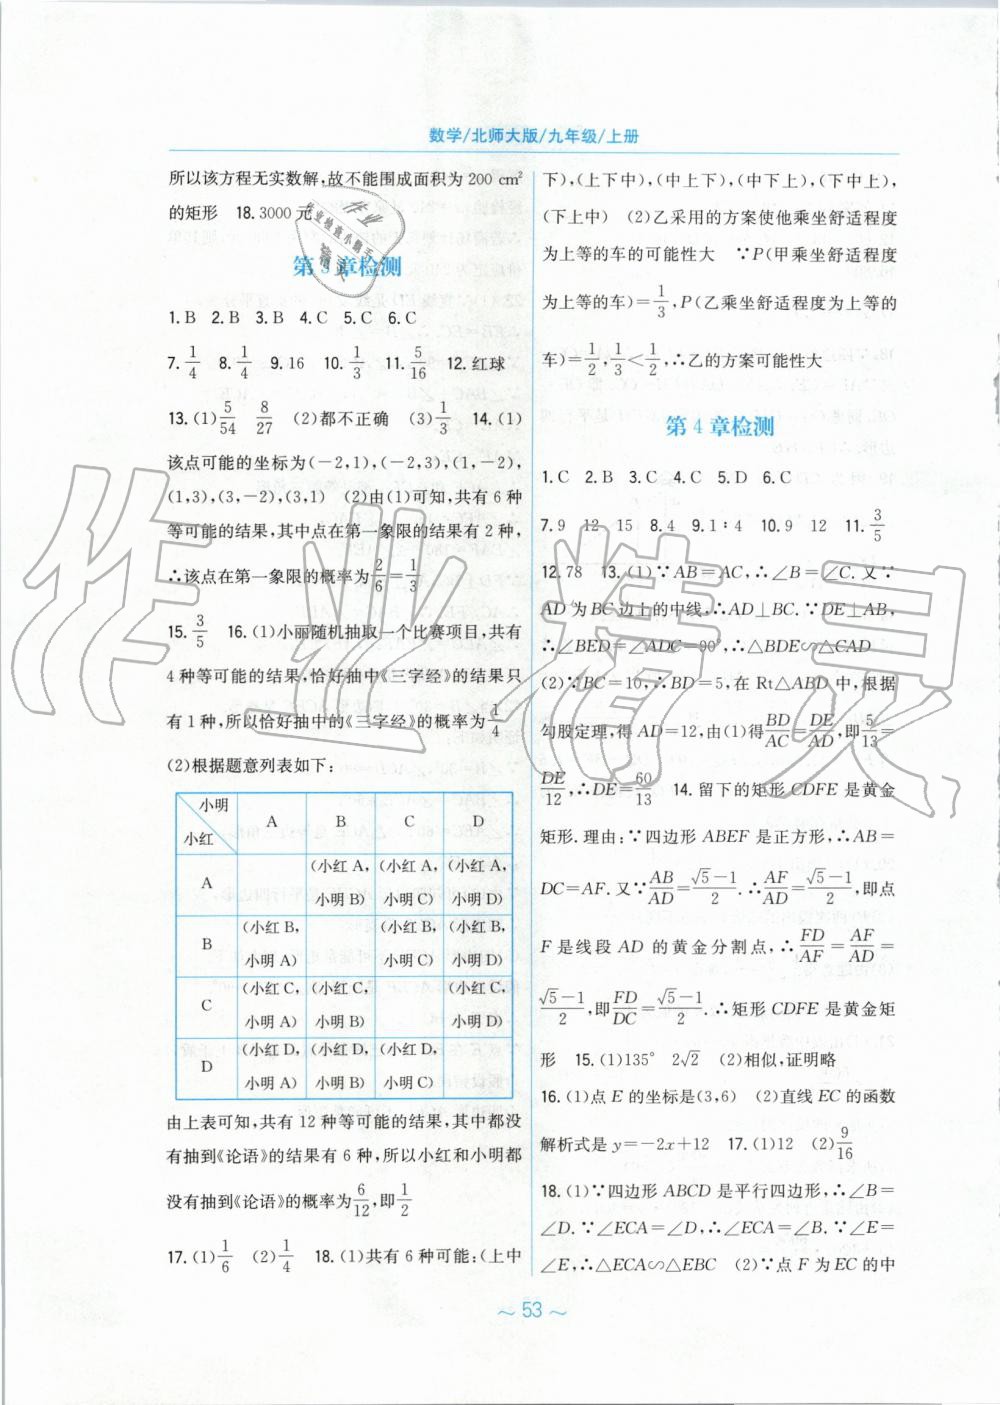 数学/北师大版/九年级/上册
所以该方程无实数解,故不能围成面积为 200 cm²
的矩形 18. 3000 元
第 3 章检测
1. B 2. B 3. B 4. C 5. C 6. C
7. 1/4 8. 1/4 9. 16 10. 1/3 11. 5/16 12. 红球
13. (1) 5/54 8/27 (2)都不正确 (3) 1/3 14. (1)
该点可能的坐标为(-2,1),(-2,3),(1,-2),
(1,3),(3,-2),(3,1) (2)由(1)可知,共有 6 种
等可能的结果,其中点在第一象限的结果有 2 种,
∴该点在第一象限的概率为 2/6 = 1/3
15. 3/5 16. (1)小丽随机抽取一个比赛项目,共有
4 种等可能的结果,恰好抽中《三字经》的结果只
有 1 种,所以恰好抽中的《三字经》的概率为 1/4
(2)根据题意列表如下:
小明
小红 A B C D
A (小红 A,小明 B) (小红 A,小明 C) (小红 A,小明 D)
B (小红 B,小明 A) (小红 B,小明 C) (小红 B,小明 D)
C (小红 C,小明 A) (小红 C,小明 B) (小红 C,小明 D)
D (小红 D,小明 A) (小红 D,小明 B) (小红 D,小明 C)
由上表可知,共有 12 种等可能的结果,其中都没
有抽到《论语》的结果有 6 种,所以小红和小明都
没有抽到《论语》的概率为 6/12,即 1/2
17. (1) 1/6 (2) 1/4 18. (1)共有 6 种可能:(上中
下),(上下中),(中上下),(中下上),(下中上),
(下上中) (2)乙采用的方案使他乘坐舒适程度
为上等的车的可能性大 ∵P(甲乘坐舒适程度
为上等的车)= 1/3,P(乙乘坐舒适程度为上等的
车)= 1/2, 1/3 < 1/2,∴乙的方案可能性大
第 4 章检测
1. C 2. B 3. C 4. C 5. D 6. C
7. 9 12 15 8. 4 9. 1∶4 10. 9 12 11. 3/5
12. 78 13. (1)∵AB=AC,∴∠B=∠C. 又∵
AD 为 BC 边上的中线,∴AD⊥BC. ∵DE⊥AB,
∴∠BED=∠ADC=90°,∴△BDE∽△CAD
(2)∵BC=10,∴BD=5,在 Rt△ABD 中,根据
勾股定理,得 AD=12,由(1)得 BD/AC = DE/AD,即 5/13 =
DE/12,∴DE= 60/13 14. 留下的矩形 CDFE 是黄金
矩形. 理由:∵四边形 ABEF 是正方形,∴AB=
DC=AF. 又∵ AB/AD = (√5-1)/2. ∴ AF/AD = (√5-1)/2,即点
F 是线段 AD 的黄金分割点,∴ FD/AF = AF/AD =
(√5-1)/2,即 FD/DC = (√5-1)/2. ∴矩形 CDFE 是黄金矩
形 15. (1)135° 2√2 (2)相似,证明略
16. (1)点 E 的坐标是(3,6) (2)直线 EC 的函数
解析式是 y=-2x+12 17. (1)12 (2) 9/16
18. (1)∵四边形 ABCD 是平行四边形,∴∠B=
∠D. ∵∠ECA=∠D,∴∠ECA=∠B. ∵∠E=
∠E,∴△ECA∽△EBC (2)∵点 F 为 EC 的中
~ 53 ~
作业精灵
作业
作业检查小助手
精灵